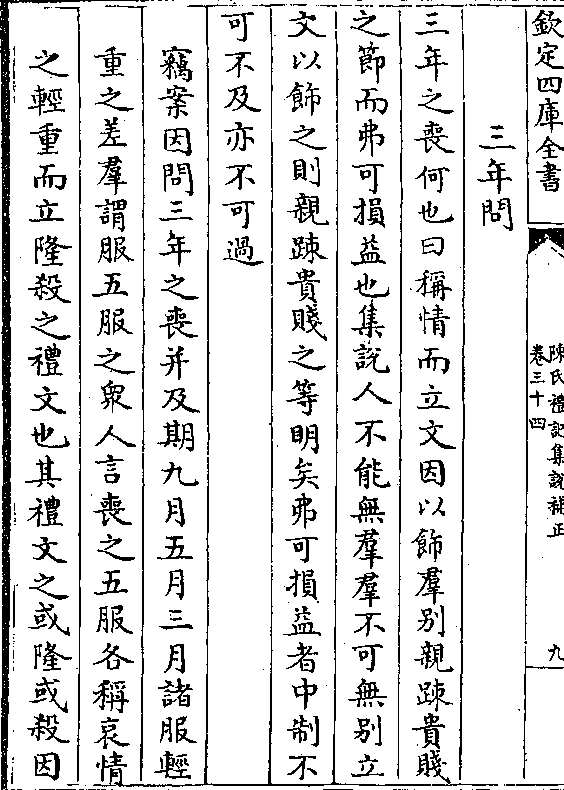 欽定四庫全書
陳氏禮記集說補正
卷三十四
九
三年問
三年之喪何也曰稱情而立文因以飾羣别親踈貴賤
之節而弗可損益也集說人不能無羣羣不可無别立
文以飾之則親踈貴賤之等明矣弗可損益者中制不
可不及亦不可過
竊案因問三年之喪并及期九月五月三月諸服輕
重之差羣謂服五服之衆人言喪之五服各稱哀情
之輕重而立隆殺之禮文也其禮文之或隆或殺因